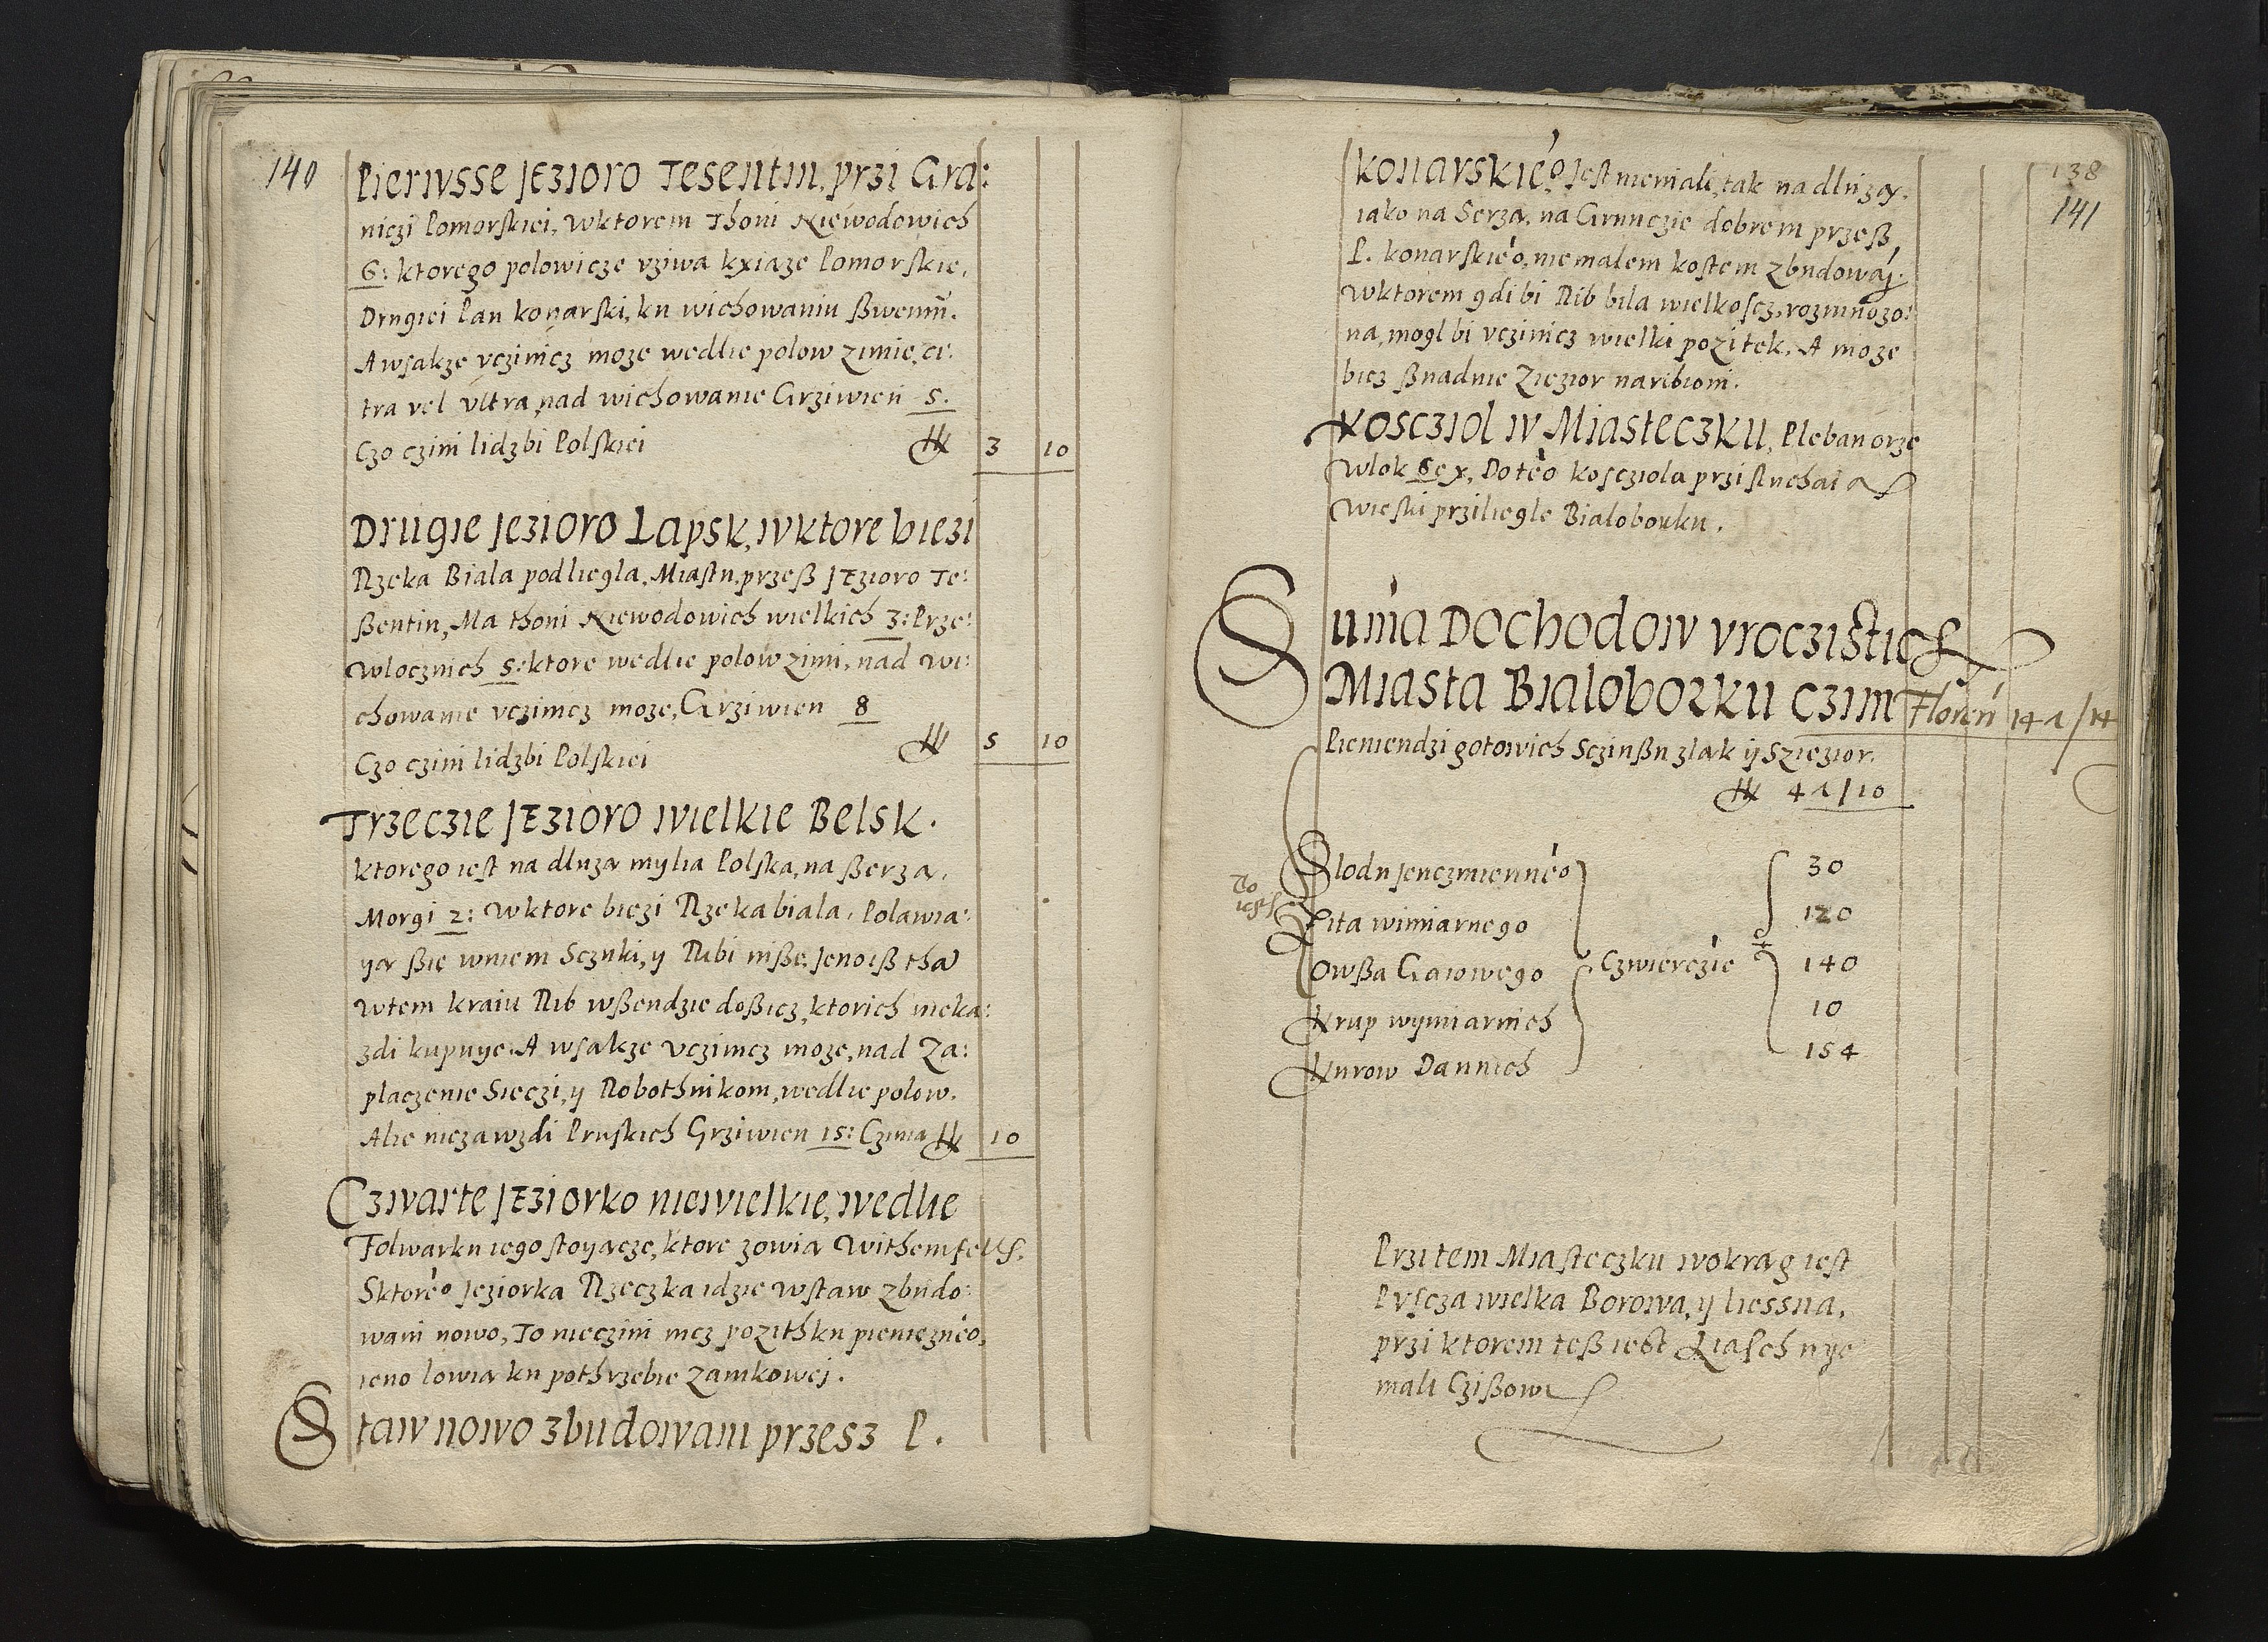 140
Pierwsse JEzioro Tesentin, przi Gra:
niczi Pomorskiei, Wktorem Thoni Niewodowich
6: ktorego polowicze vziwa kxiaze Pomorskie,
Drugiei Pan konarski, ku wichowaniu ßwemu.
Awsakze vczinicz moze wedlie polow zimie, ci:
tra vel vltra, nad wichowanie Grziwien 5.
Czo czini lidzbi Polskiei 3 10
Drugie Jezioro Lapsk, w ktore biezi
Rzeka Biala podliegla, Miastu, przeß JEzioro Te:
ßentin, Ma thoni Niewodowich wielkich 3: Prze:
Wlocznich 5: ktore wedlie polow zimi, nad wi:
chowanie vczinicz moze, Grziwien 8
Czo czini lidzbi Polskiei 5 10
Trzeczie JEzioro wielkie Belsk.
ktorego iest na dluza mylia Polska, na ßerza.
Morgi 2: Wktore biezi Rzeka biala, Polawia:
ya ßie wniem Sczuki, y Ribi inße, Jenoiß tha
wtem kraiu Rib wßendzie doßicz, ktorich nieka:
zdi kupuye. A wsakze vczinicz moze, nad Za:
placzenie Sieczi, y Robothnikom, wedlie polow.
Alie niezawzdi Pruskich Grziwien 15: Czinia 10
Czwarte JEziorko niewielkie, wedlie
Folwarku iego stoyacze, ktore zowia Withemfells.
Sktoreo Jeziorka Rzeczka idzie wstaw zbudo:
wani nowo, To nieczini nicz pozithku pienieznéo,
ieno lowia ku pothrzebie Zamkowej.
Staw nowo zbudowani przesz P.
138
141
konarskieo. Jest niemali, tak na dluza,
iako na Serza, na Grunczie dobrem przeß
P. konarskieo, niemalem kostem zbudowaj.
Wktorem gdi bi Rib bila wielkoscz, rozmnozo:
na, mogl bi vczinicz wielki pozitek. A moze
bicz ßnadnie Ziezior naribioni.
Kosczsiol w Miasteczku, Pleban orze
Wlok Sex, Do teo koscziola przisluchaia
Wieski przilegle Bialoborku.
Suma Dochodow vroczistich
Miasta Bialoborku czini Floren 141/14
Pieniendzi gotowich Sczinßu zlak y Szieziór.
41/10
To iest
Slodu Jenczmienneo 30
Zita wimiarnego 120
Owßa Gaiowego Czwierczie 140
Krup wymiarnich 10
Kurow Dannich 154
Przi tem Miasteczku wokrag iest
Pvscza wielka Borowa, y liessna,
przi ktorem teß iest Liasch nye
mali Czißowi